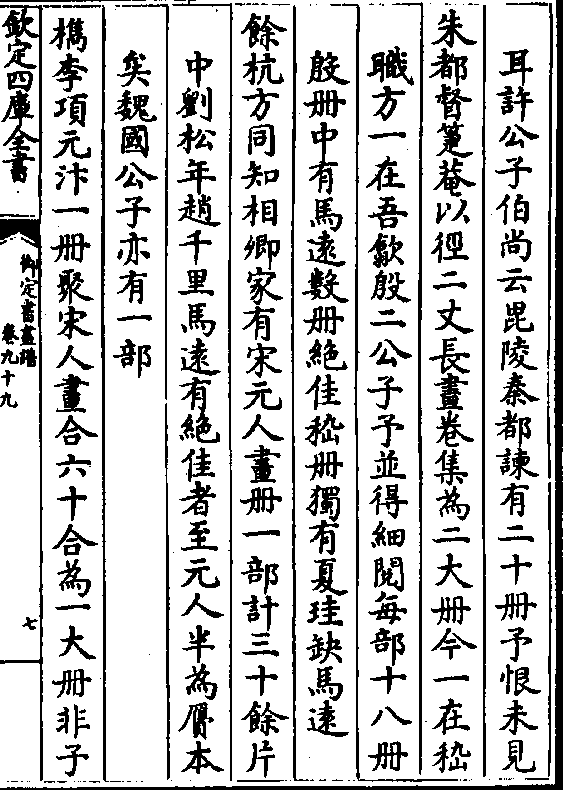 耳許公子伯尚云毘陵秦都諫有二十册予恨未見
朱都督箑菴以徑二丈長畫卷集為二大册今一在嵇
職方一在吾歙殷二公子予並得細閱每部十八册
殷册中有馬逺數册絶佳嵇册獨有夏珪缺馬逺
餘杭方同知相卿家有宋元人畫册一部計三十餘片
中劉松年趙千里馬逺有絶佳者至元人半為贗本
矣魏國公子亦有一部
檇李項元汴一册聚宋人畫合六十合為一大册非子
欽定四庫全書
御定書畫譜
卷九十九
七